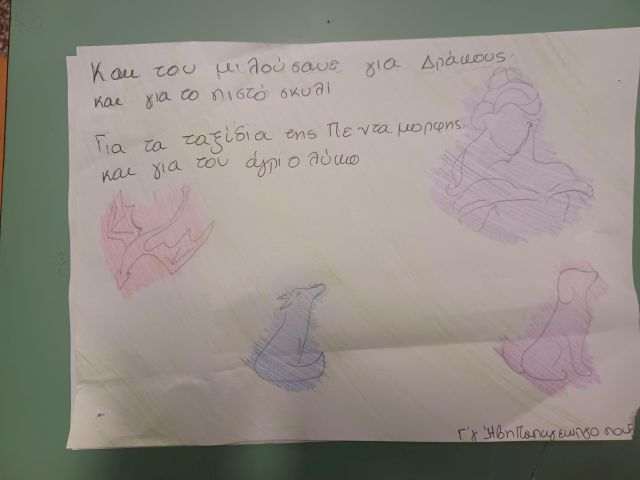 Και του μιλούσανε για Δράκους
και για το πιστό σκυλί
Για τα ταξίδια της Πεντάμορφης
και για τον άγριο λύκο
Γ'γ Ήβη Παπαγεωργοπου